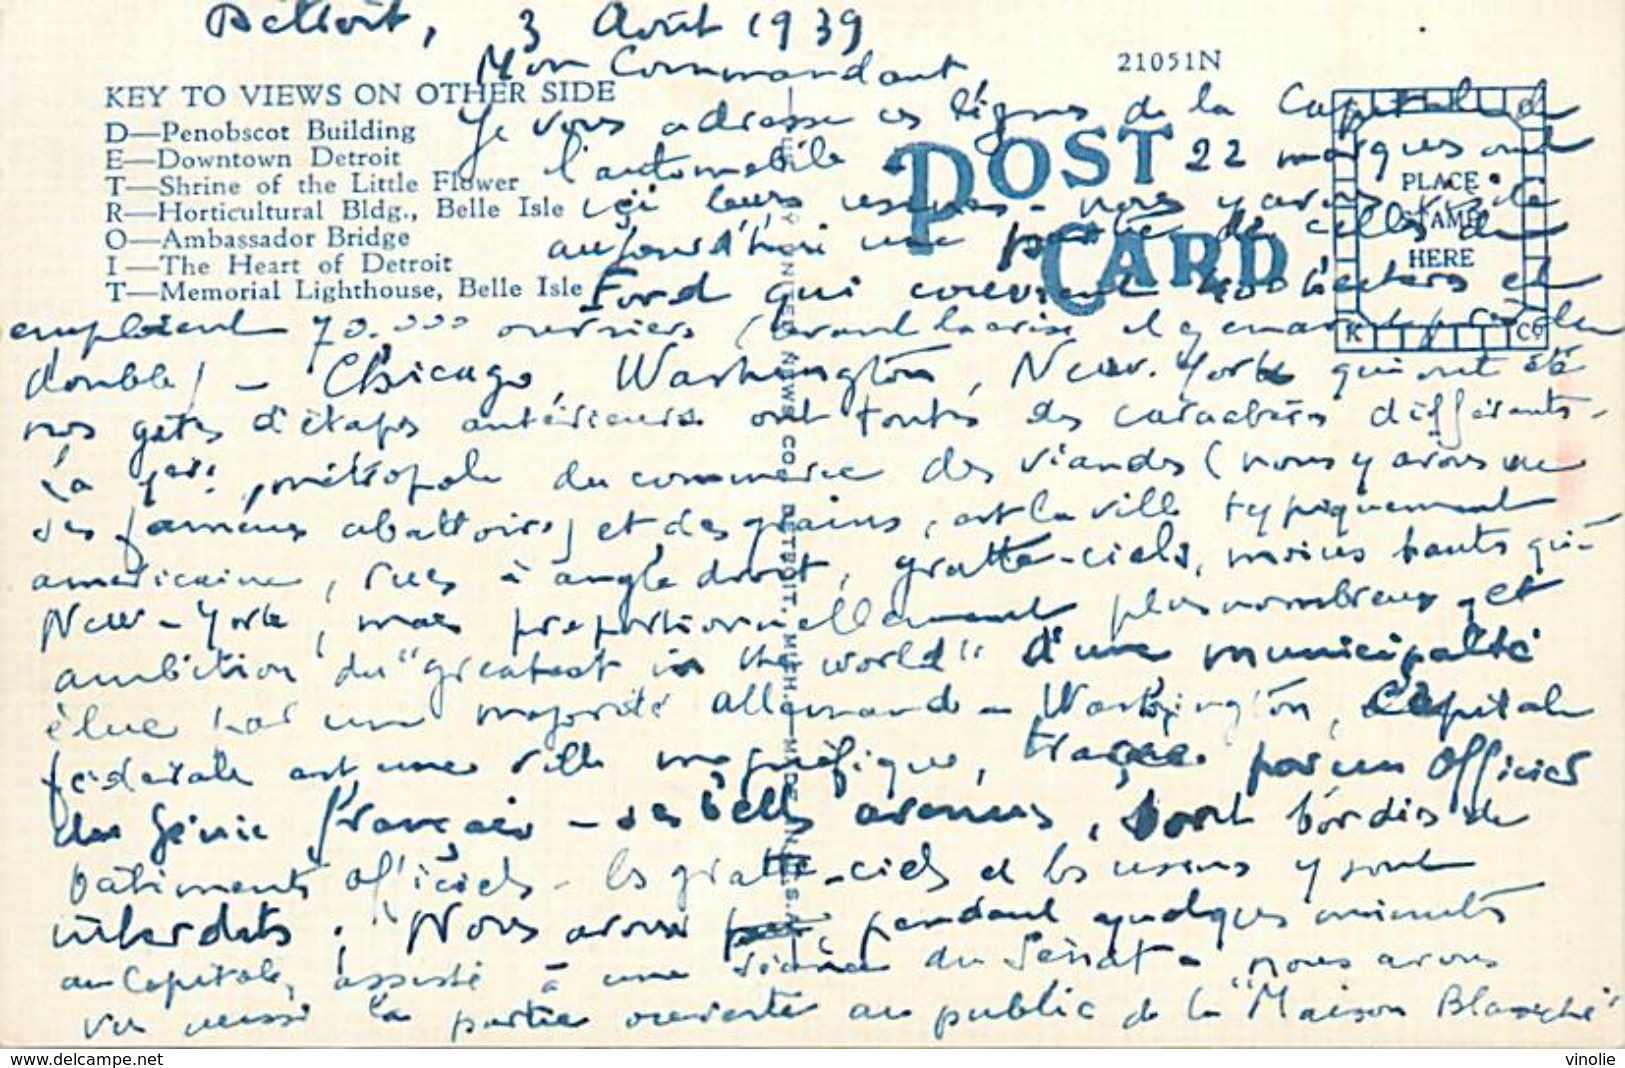 Détroit, 3 Août 1939
Mon Commandant,
21051N
KEY TO VIEWS ON OTHER SIDE
D—Penobscot Building
E—Downtown Detroit
T—Shrine of the Little Flower
R—Horticultural Bldg., Belle Isle
O—Ambassador Bridge
I—The Heart of Detroit
T—Memorial Lighthouse, Belle Isle
POST CARD
PLACE
STAMP
HERE
UNITED NEWS CO. DETROIT, MICH.
Je vous adresse ces lignes de la Capitale de
l'automobile - 22 marques ont
ici leurs usines - nous y avons visité
aujourd'hui une partie de celles de
Ford qui couvrent 400 hectares et
emploient 70.000 ouvriers (avant la crise il y en avait le
double) - Chicago, Washington, New-York qui ont été
nos gîtes d'étapes antérieurs ont toutes des caractères différents -
La 1ère, métropole du commerce des viandes (nous y avons vu
ses fameux abattoirs) et des grains, est la ville typiquement
américaine, rues à angle droit, gratte-ciels, moins hauts qu'à
New-York, mais proportionnellement plus nombreux, et
ambition du "greatest in the world" d'une municipalité
élue par une majorité allemande - Washington, Capitale
fédérale est une ville magnifique, tracée par un Officier
du Génie français - ses belles avenues, sont bordées de
bâtiments officiels - les gratte-ciels et les usines y sont
interdits ; Nous avons pendant quelques minutes
au Capitole, assisté à une séance du Sénat - nous avons
vu aussi la partie ouverte au public de la "Maison Blanche"
www.delcampe.net
vinolie